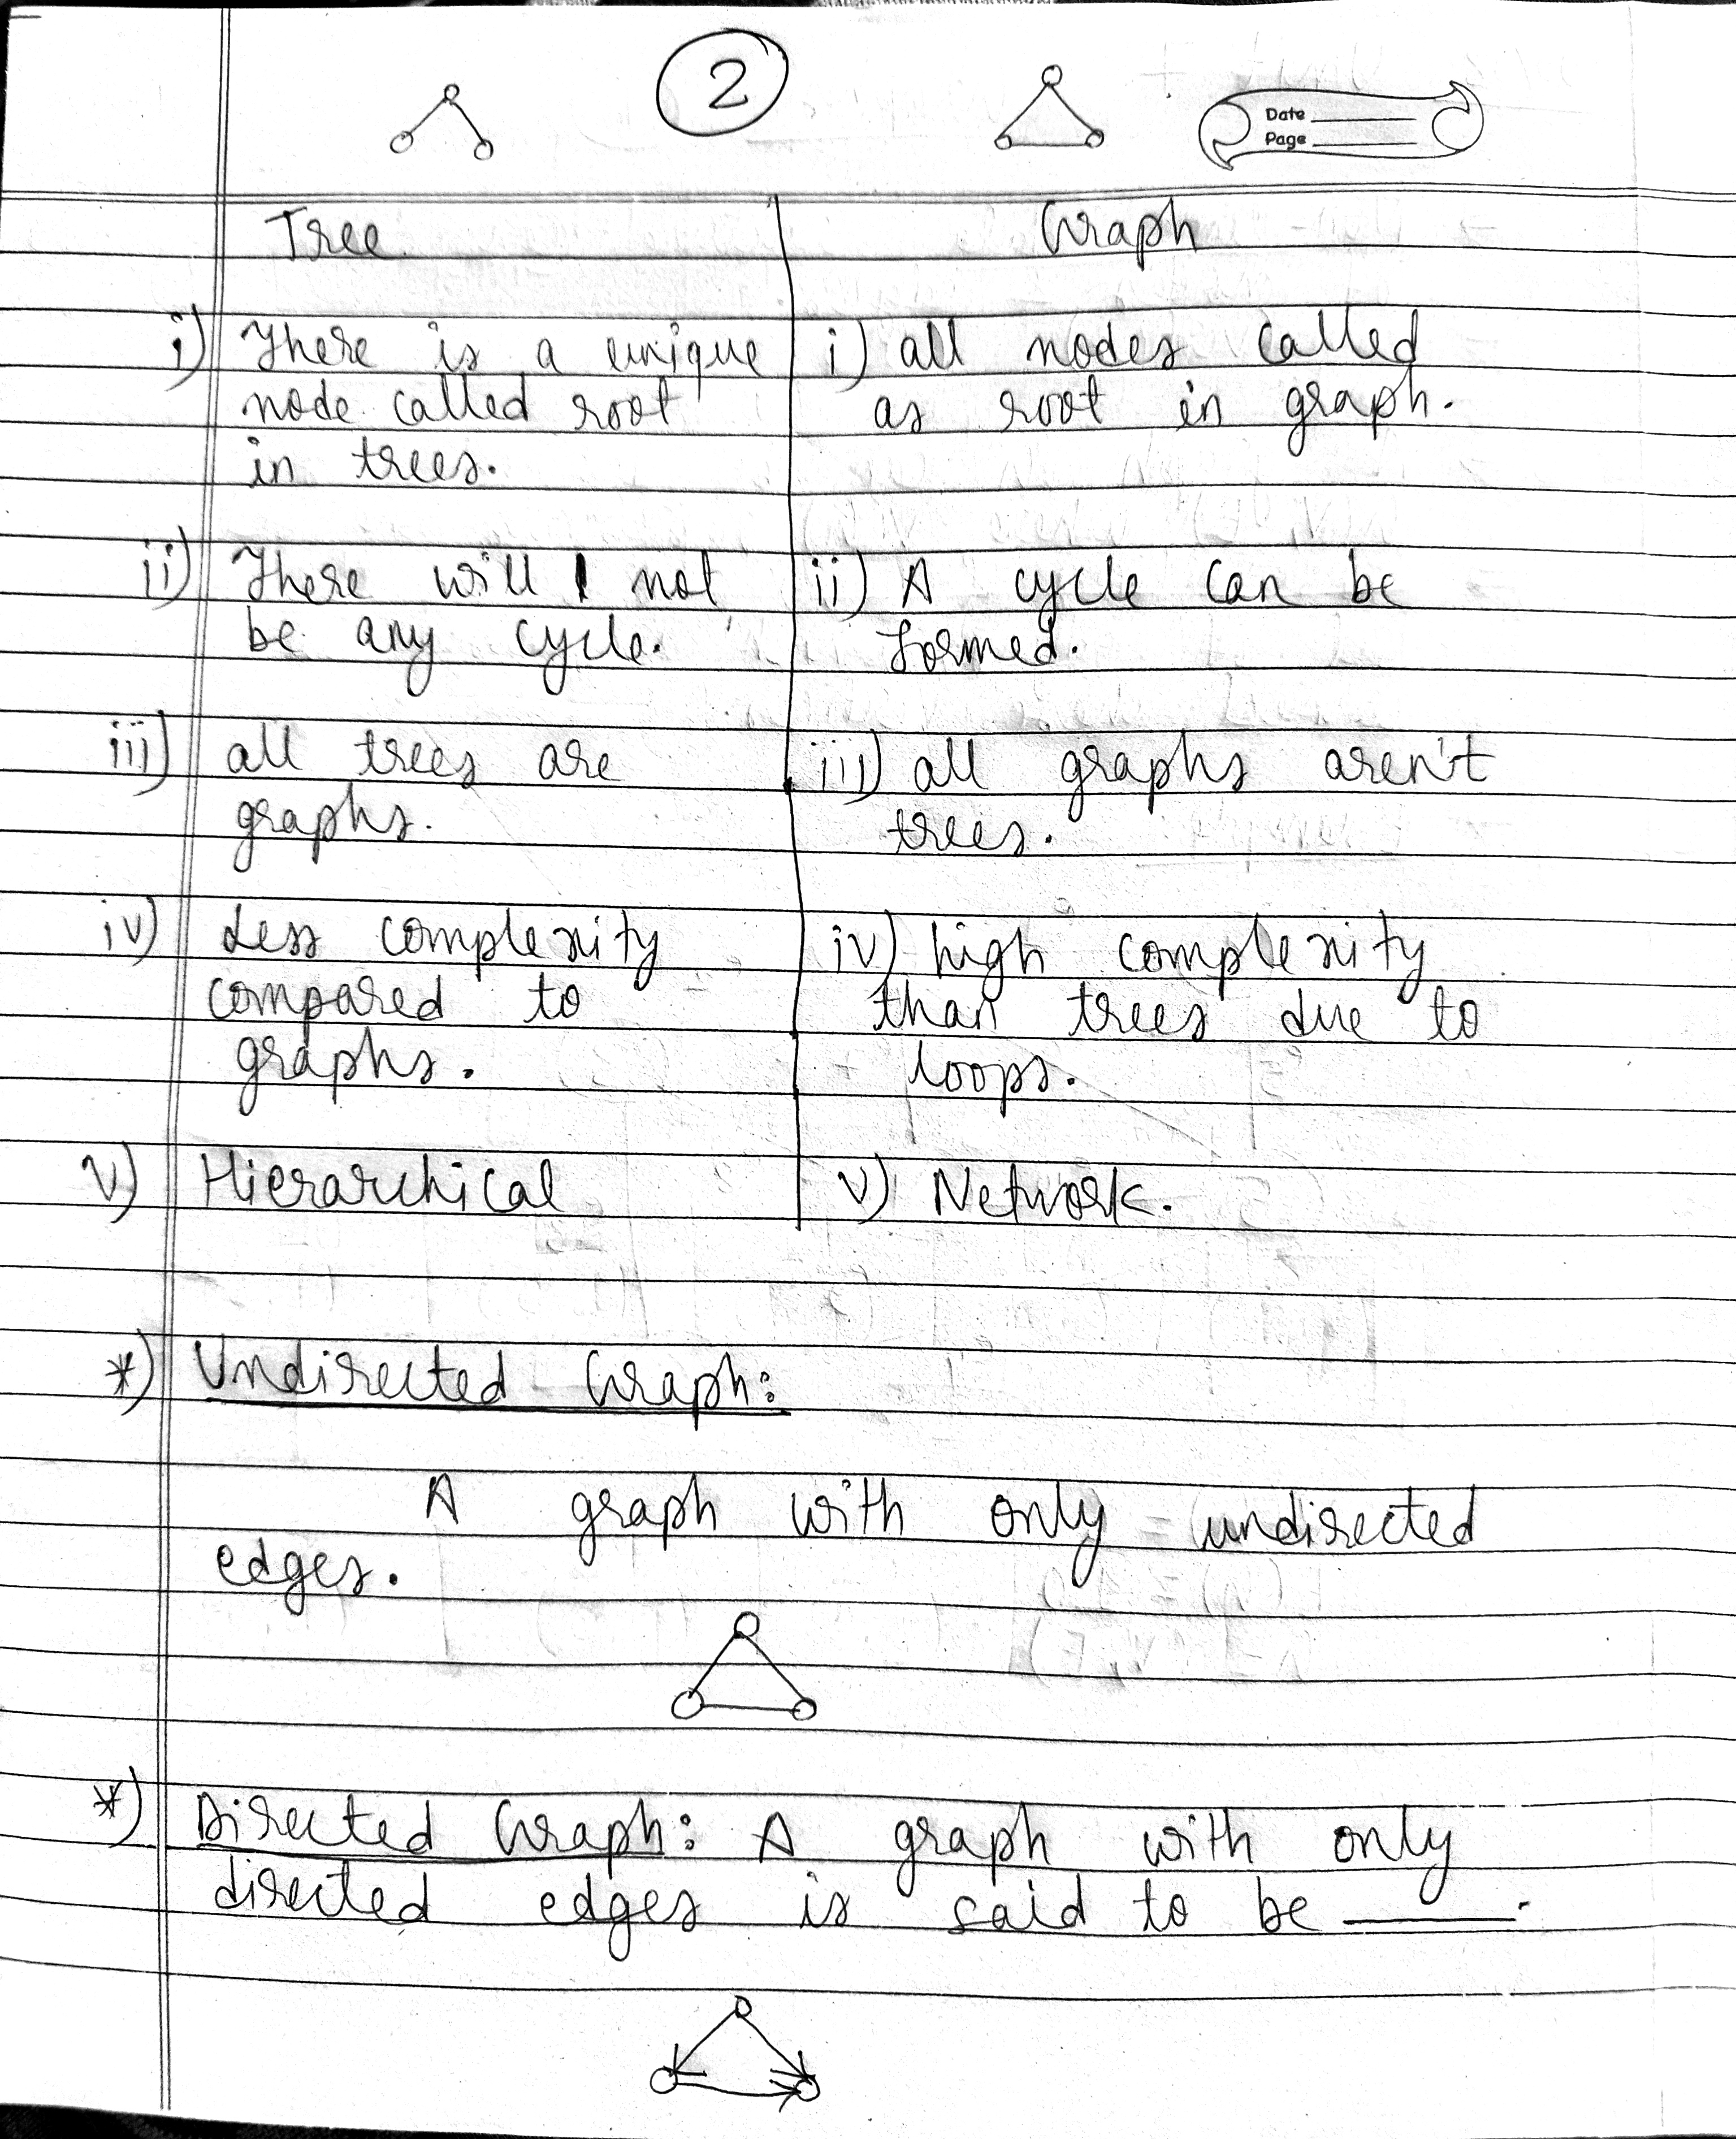 2
Date
Page
Tree
Graph
i) There is a unique
node called root
in trees.
i) all nodes called
as root in graph.
ii) There will not
be any cycle.
ii) A cycle can be
formed.
iii) all trees are
graphs.
iii) all graphs aren't
trees.
iv) Less complexity
compared to
graphs.
iv) high complexity
than trees due to
loops.
v) Hierarchical
v) Network.
*) Undirected Graph:
A graph with only undirected
edges.
*) Directed Graph: A graph with only
directed edges is said to be ______.